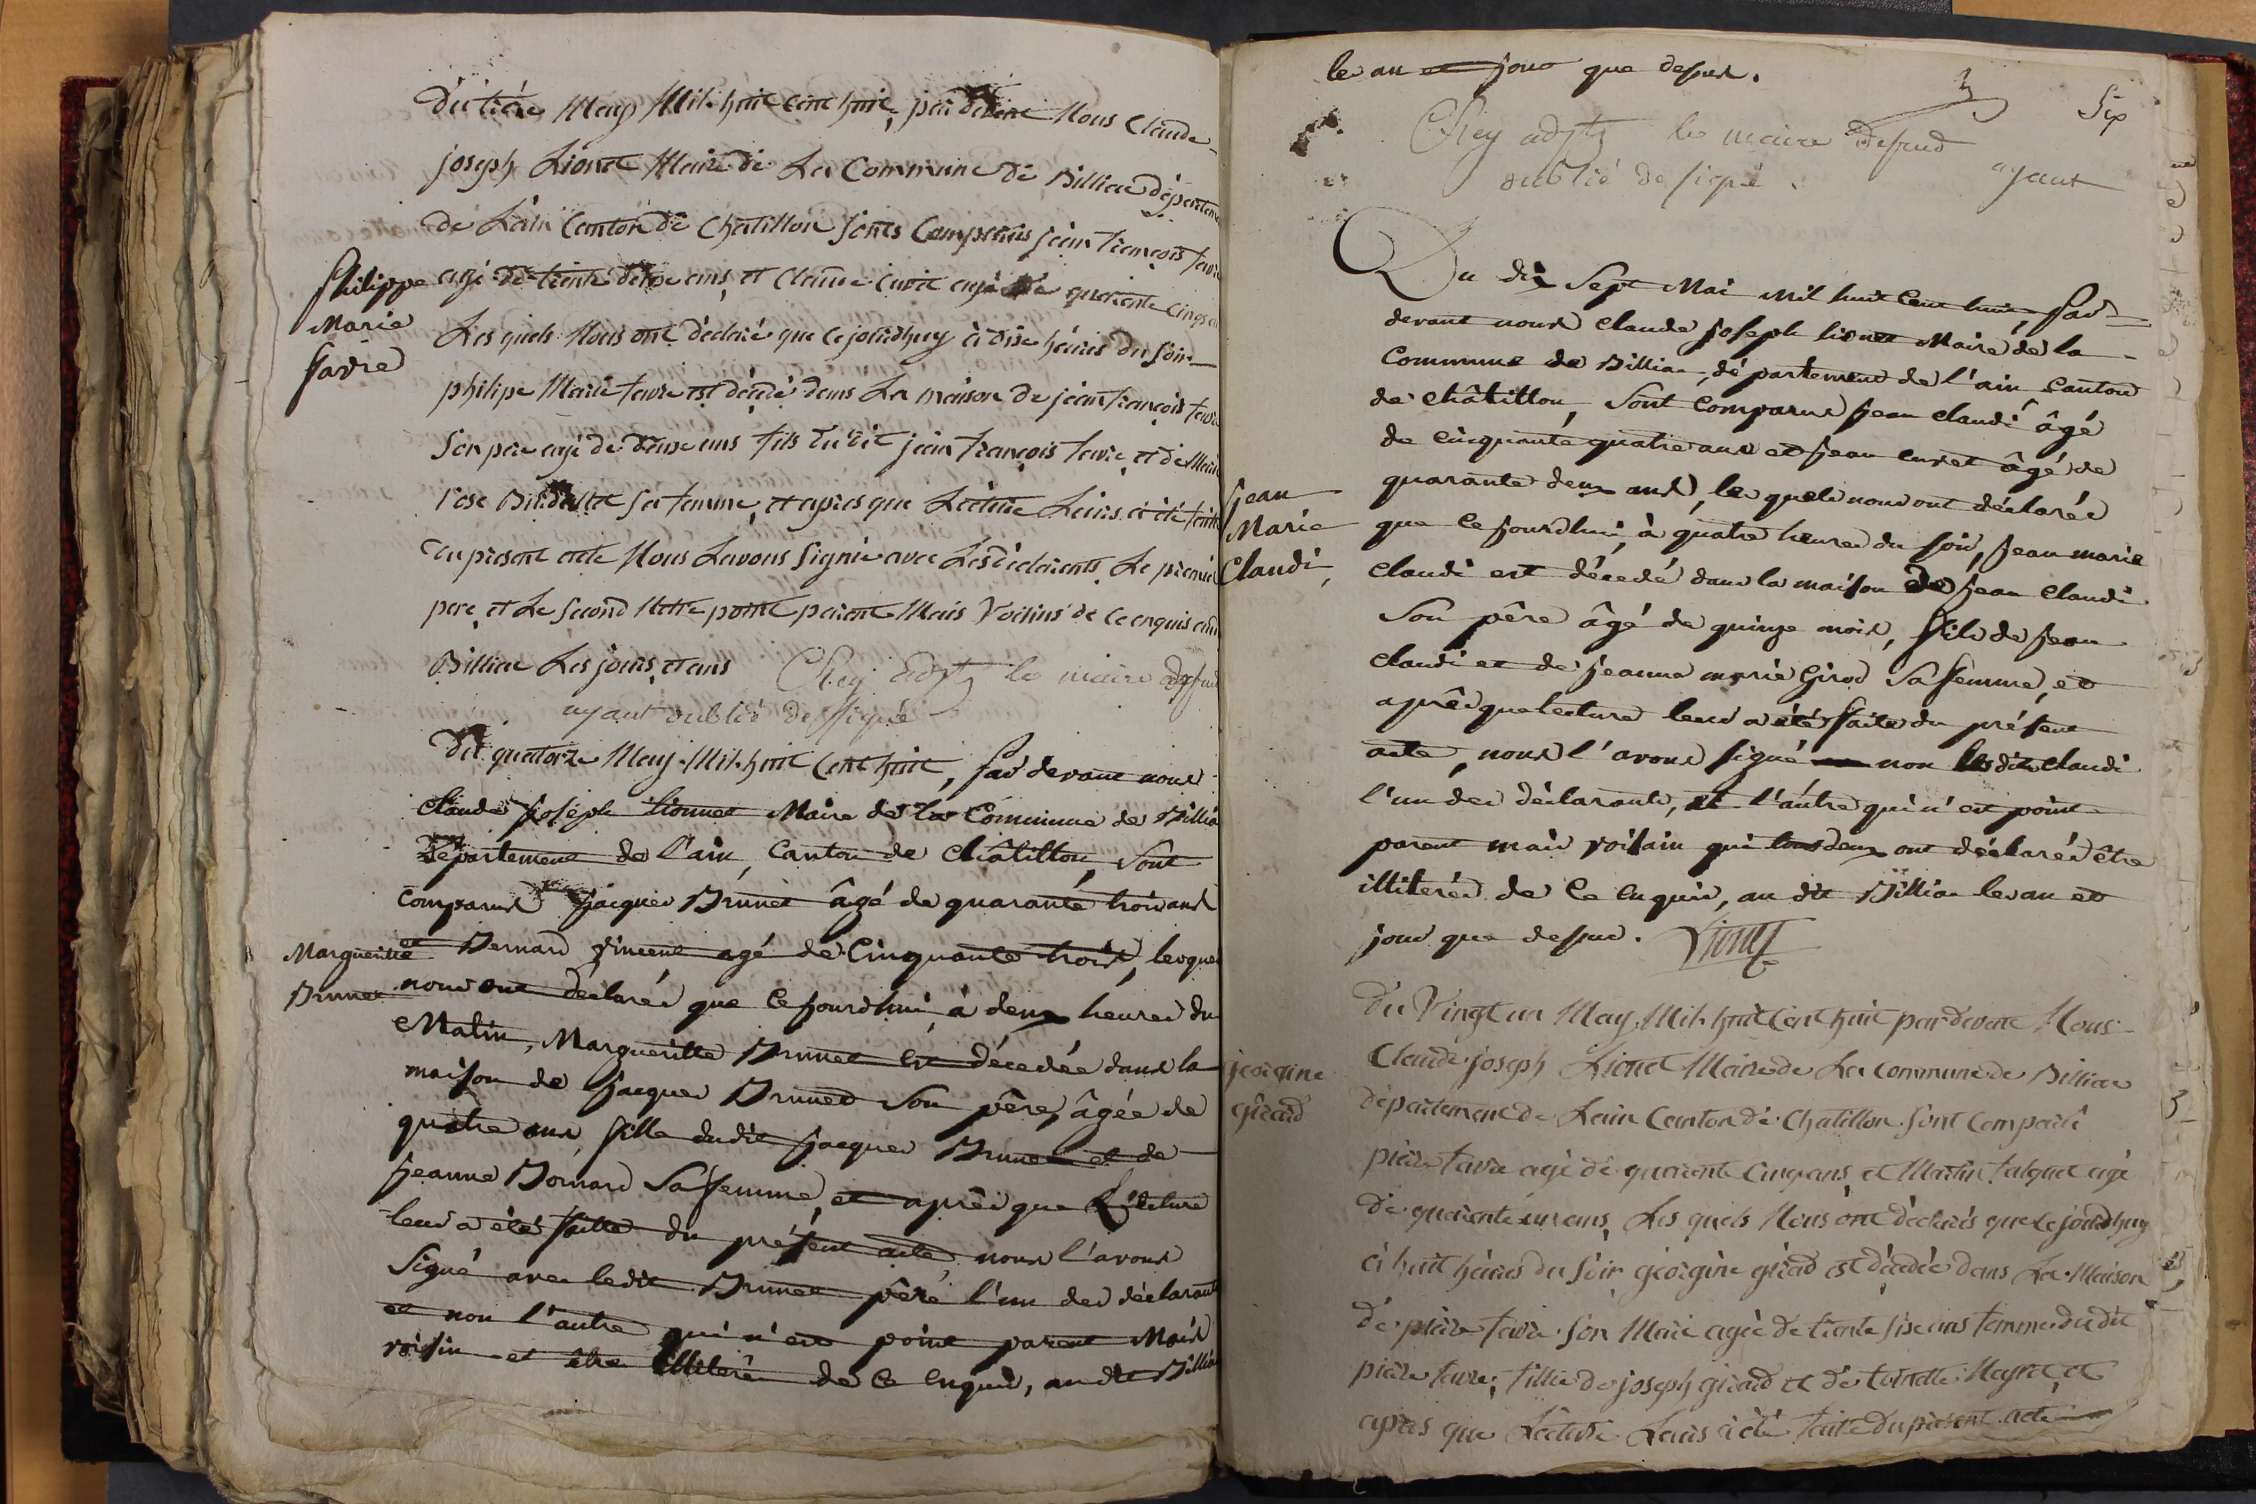 Du treise May Mil huit cent huit, par devant Nous Claude
joseph Lionet Maire de La Commune de Billiac départem
de Lain Canton de Chatillon sonts Comparûs jean françois favre
agé de trente deux ans, et Claude Curet agé de quarante cinqs ans
Philippe
Marie
favre
Les quels Nous ont déclaré que cejourdhuy à dise héures du Soir
philipe Marie favre est décédé dans La maison de jean françois favre
son pere agé de deuse ans fils du dit jean françois favre, et de Marie
rose sa femme, et apres que Lecture Leurs a été faitte
du present acte Nous Lavons Signé avec Les déclarants, Le premier
pere, et Le second Netre point parent Mais Voisins de ce enquis audit
Billiac Les jours, et ans Chey adjt le maire desus
ayant oublié de signé
Du quatorze May Mil huit cent huit, par devant nous
Claude joseph Lionnet Maire de la Commune de Billia
Département de l'ain, Canton de châtillon, sont
comparus jacques Brunet âgé de quarante trois ans
Margueritte
Brunet
et Bernard vincent agé de Cinquante trois, lesquel
nous ont déclarés que cejourdhui à deux heures du
Matin, Margueritte Brunet est décedée dans la
maison de jacques Brunet son pêre, âgée de
quatre ans, fille dudit jacques Brunet et de
jeanne Bornard sa femme, et aprês que Lécture
leur a été faitte du présent acte nous l'avons
signé avec ledit Brunet pêre l'un des déclarant
et non l'autre qui n'est point parent Mais
voisin et être illiterée de ce enquis, au dit Billia
les an et jour que desus.
Six
Chey adjt le maire desus
ayant
oublié de signé.
Du dix sept Mai mil huit cent huit, par
devant nous Claude joseph lionet Maire de la
commune de Billiac, département de l'ain canton
de châtillon, sont comparus jean claudi âgé
de cinquante quatre ans et jean curet âgé de
quarante deux ans, les quels nous ont déclarés
jean
Marie
Claudi,
que cejourdhui, à quatre heures du soir, jean marie
claudi est décedé dans la maison de jean claudi
son pêre âgé de quinze mois, fils de jean
claudi et de jeanne marie Girod sa femme, et
aprês que lecture leur a été faite du présent
acte, nous l'avons signé non les dits claudi
l'un des déclarants, et l'autre qui n'est point
parent mais voisain qui tous deux ont déclarés être
illiterés de ce enquis, au dit Billiac les an et
jour que desus. Lionet
Du Vingt un May Mil huit Cent huit par devant Nous
Claude joseph Lionet Maire de La commune de Billiac
jeorgine
girard
département de Lain Canton de Chatillon sont Comparû
pierre favre agé de quarente Cinq ans, et Martin falquet agé
de quarente un ans, Les quels Nous ont déclarés que cejourdhuy
à huit héures du soir georgine girard est décédée dans La Maison
de pierre favre son Marie agée de trente sise ans femme du dit
pierre favre, fillie de joseph girard et de toinette Meyret, et
apres que Lecture Leurs a été faite du présent acte